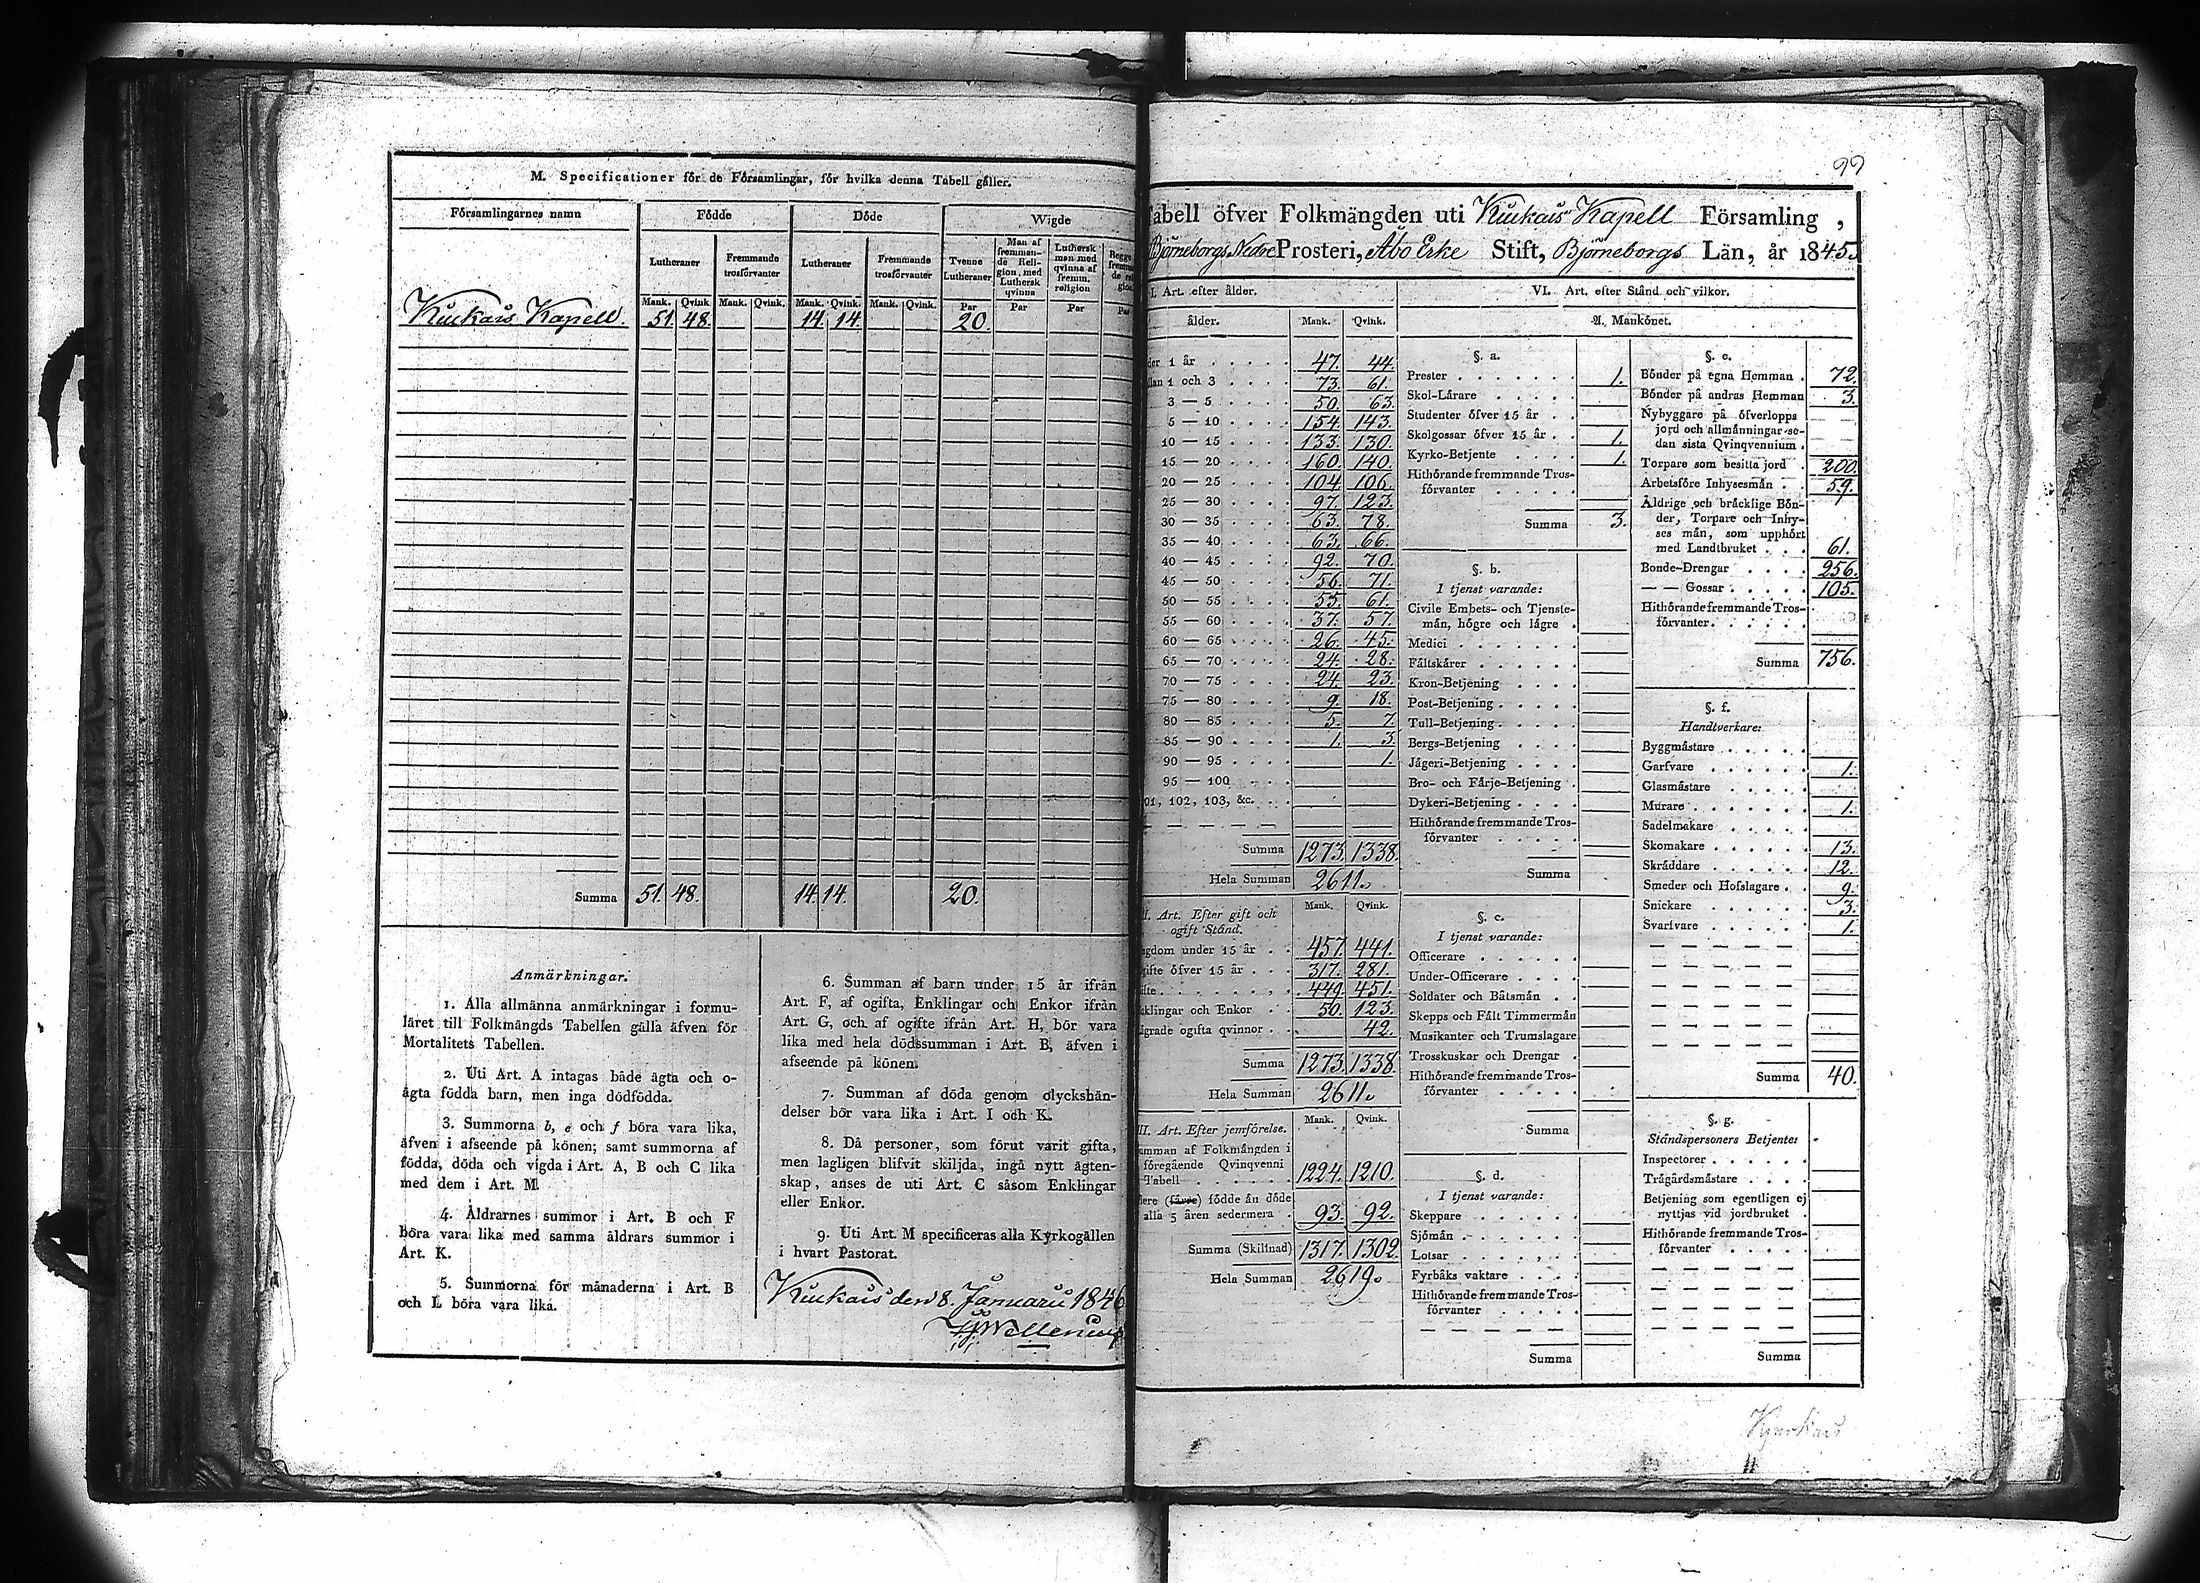 M. Specificationer för de Församlingar, för hvilka denna Tabell gäller.
Församlingarnes namn Födde Döde Wigde
Lutheraner Fremmande trosförvanter Lutheraner Fremmande trosförvanter Tvenne Lutheraner Man af fremmande Religion med Luthersk qvinna Luthersk man med qvinna af fremm. religion
Mank. Qvink. Mank. Qvink. Mank. Qvink. Mank. Qvink. Par Par Par Par
Kiukais Kapell. 51. 48. 14. 14. 20.
Summa 51. 48. 14. 14. 20.
Anmärkningar.
1. Alla allmänna anmärkningar i formu-
läret till Folkmängds Tabellen gälla äfven för
Mortalitets Tabellen.
2. Uti Art. A intagas både ägta och o-
ägta födda barn, men inga dödfödda.
3. Summorna b, e och f böra vara lika,
äfven i afseende på könen; samt summorna af
födda, döda och vigda i Art. A, B och C lika
med dem i Art. M.
4. Åldrarnes summor i Art. B och F
böra vara lika med samma åldrars summor i
Art. K.
5. Summorna för månaderna i Art. B
och L böra vara lika.
6. Summan af barn under 15 år ifrån
Art. F, af ogifta, Enklingar och Enkor ifrån
Art. G, och af ogifte ifrån Art. H, bör vara
lika med hela dödssumman i Art. B, äfven i
afseende på könen.
7. Summan af döda genom olyckshän-
delser bör vara lika i Art. I och K.
8. Då personer, som förut varit gifta,
men lagligen blifvit skiljda, ingå nytt ägten-
skap, anses de uti Art. C såsom Enklingar
eller Enkor.
9. Uti Art. M specificeras alla Kyrkogällen
i hvart Pastorat.
Kiukais den 8. Januarii 1846
99
Tabell öfver Folkmängden uti Kiukais Kapell Församling,
Björneborgs Nedre Prosteri, Åbo Erke Stift, Björneborgs Län, år 1845.
I. Art. efter ålder.
ålder. Mank. Qvink.
1 år 47. 44.
1 och 3 73. 61.
3 — 5 50. 63.
5 — 10 154. 143.
10 — 15 133. 130.
15 — 20 160. 140.
20 — 25 104. 106.
25 — 30 97. 123.
30 — 35 63. 78.
35 — 40 63. 66.
40 — 45 92. 70.
45 — 50 56. 71.
50 — 55 55. 61.
55 — 60 37. 57.
60 — 65 26. 45.
65 — 70 24. 28.
70 — 75 24. 23.
75 — 80 9. 18.
80 — 85 5. 7.
85 — 90 1. 3.
90 — 95 1.
95 — 100
101, 102, 103, &c.
Summa 1273. 1338.
Hela Summan 2611.
II. Art. Efter gift och
ogift Stånd. Mank. Qvink.
under 15 år 457. 441.
öfver 15 år 317. 281.
449. 451.
och Enkor 50. 123.
ogifta qvinnor 42.
Summa 1273. 1338.
Hela Summan 2611.
III. Art. Efter jemförelse. Mank. Qvink.
Summan af Folkmängden i
föregående Qvinqvenni
Tabell 1224. 1210.
(färre) födde än döde
alla 5 åren sedermera 93. 92.
Summa (Skillnad) 1317. 1302.
Hela Summan 2619.
VI. Art. efter Stånd och vilkor.
A. Mankönet.
§. a.
Prester 1.
Skol-Lärare
Studenter öfver 15 år
Skolgossar öfver 15 år 1.
Kyrko-Betjente 1.
Hithörande fremmande Tros-
förvanter
Summa 3.
§. b.
I tjenst varande:
Civile Embets- och Tjenste-
män, högre och lägre
Medici
Fältskärer
Kron-Betjening
Post-Betjening
Tull-Betjening
Bergs-Betjening
Jägeri-Betjening
Bro- och Färje-Betjening
Dykeri-Betjening
Hithörande fremmande Tros-
förvanter
Summa
§. c.
I tjenst varande:
Officerare
Under-Officerare
Soldater och Båtsmän
Skepps och Fält Timmermän
Musikanter och Trumslagare
Trosskuskar och Drengar
Hithörande fremmande Tros-
förvanter
Summa
§. d.
I tjenst varande:
Skeppare
Sjömän
Lotsar
Fyrbåks vaktare
Hithörande fremmande Tros-
förvanter
Summa
§. e.
Bönder på egna Hemman 72.
Bönder på andras Hemman 3.
Nybyggare på öfverlopps
jord och allmänningar se-
dan sista Qvinqvennium
Torpare som besitta jord 200.
Arbetsföre Inhysesmän 59.
Åldrige och bräcklige Bön-
der, Torpare och Inhy-
ses män, som upphört
med Landtbruket 61.
Bonde-Drengar 256.
— — Gossar 105.
Hithörande fremmande Tros-
förvanter
Summa 756.
§. f.
Handtverkare:
Byggmästare
Garfvare 1.
Glasmästare
Murare 1.
Sadelmakare
Skomakare 13.
Skräddare 12.
Smeder och Hofslagare 9.
Snickare 3.
Svarfvare 1.
Summa 40.
§. g.
Ståndspersoners Betjente:
Inspectorer
Trägårdsmästare
Betjening som egentligen ej
nyttjas vid jordbruket
Hithörande fremmande Tros-
förvanter
Summa